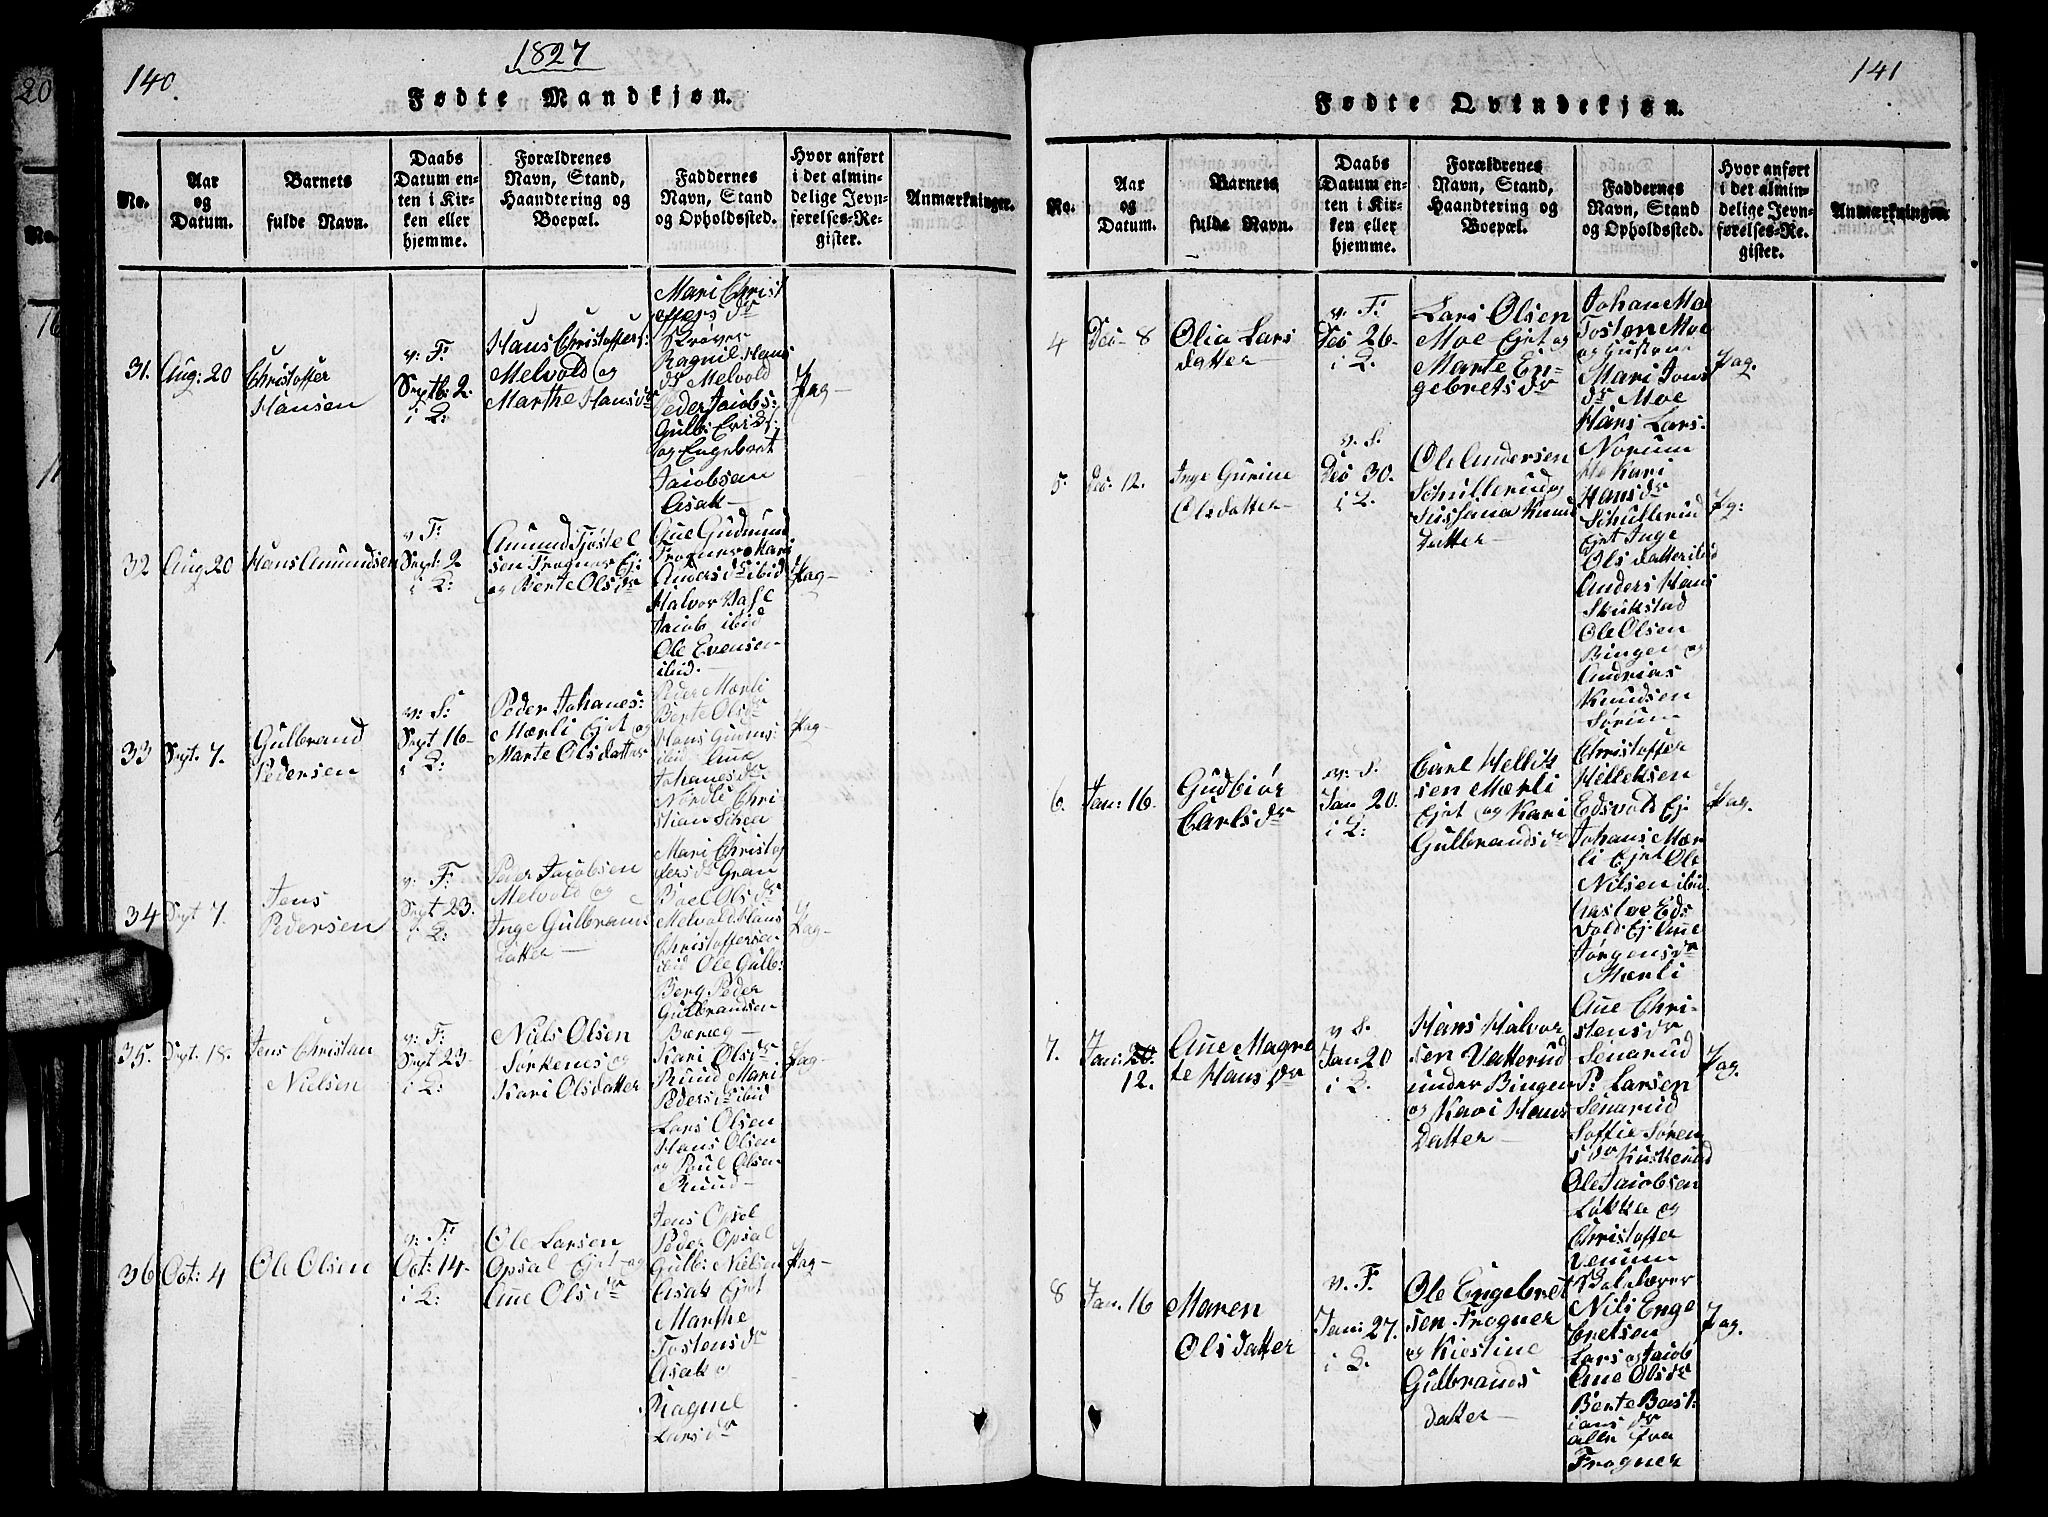 140.
1827
Fødte Mandkjøn.
No.
Aar
og
Datum.
Barnets
fulde Navn.
Daabs
Datum en-
ten i Kir-
ken eller
hjemme.
Forældrenes
Navn, Stand,
Haandtering og
Boepæl.
Faddernes
Navn, Stand
og Opholdssted.
Hvor anført
i det almin-
delige Jevn-
førelses-Re-
gister.
Anmærkninger.
31.
Aug: 20
Christoffer
Hansen
v: F:
Septb: 2.
i L:
Hans Christoffers:
Melvold og
Marthe Hansdr
Mari Christ
offersdr
Kröver
Ragnil Hans
dr Melvold
Peder Jacobs:
Gulb: Eriks:
og Engebret
Jacobsen
Asak
Pag
32
Aug 20
Hans Amundsen
v: F:
Sept: 2
i L:
Amund Tjostel
sen Frogner Ej:
og Berte Olsdr
Ane Gudmund
Frogner Kari
Andersdr ibid
Halvor
Jacob ibid
Ole Evensen
ibid.
Pag
33
Sept. 7.
Gulbrand
Pedersen
v: S:
Sept 16
i L:
Peder Johanes:
Mærli Ejet og
Marte Olsdatter
Peder Mærli
Berte Olsdr
Hans
ibid Ane
Johanesdr
Nordli Chri
stian
Pag
34
Sept 7.
Jens
Pedersen
v: F:
Sept 23.
i L:
Peder Jacobsen
Melvold og
Inge Gulbrans
datter
Mari Christof
fersdr Gran
Boel Olsdr
Melvold Hans
Christoffersen
ibid Ole Gulb:
Berg Peder
Gulbrandsen
Pag
35.
Sept. 18.
Jens Christan
Nielsen
v: F:
Sept 23
i L:
Niels Olsen
Sörkenes og
Kari Olsdatter
Kari Olsdr
Ruud Mari
Pedersdr ibid
Lars Olsen
Hans Olsen
og Poul Olsen
Ruud
Pag
36
Oct: 4
Ole Olsen
v: F:
Oct: 14
i L:
Ole Larsen
Opsal Ejet og
Ane Olsdr
Jens Opsal
Peder Opsal
Gulb: Nielsen
Asak Ejet
Marthe
Tostensdr
Asak og
Ragne
Larsdr
Pag
141
Fødte Qvindekjøn.
No.
Aar
og
Datum.
Barnets
fulde Navn.
Daabs
Datum en-
ten i Kir-
ken eller
hjemme.
Forældrenes
Navn, Stand,
Haandtering og
Boepæl.
Faddernes
Navn, Stand
og Opholdssted.
Hvor anført
i det almin-
delige Jevn-
førelses-Re-
gister.
Anmærkninger.
4
Des 8
Olia Lars
datter
v. F:
Des 26
i L:
Lars Olsen
Moe Ejet og
Marte En-
gebretsdr
Johan Moe
Tosten Moe
og
Mari Jons
dr Moe
Hans Lars.
Pag.
5.
Des. 12.
Inge Gurine
Olsdatter
v. S.
Des 30.
i L.
Ole Andersen
Schullerud og
Sussana Knud
datter
Norum
Kari
Hansdr
Schullerud
Ejet Inge
Olsdatter ibid
Anders Hans
Skukstad
Ole Olsen
Bingen og
Andrias
Knudsen
Sorum
Pag:
6.
Jan: 16.
Gudbiör
Carlsdr
v. S.
Jan 20.
i L:
Carl Hellik
sen Mærli
Ejet og Kari
Gulbrandsdr
Christoffer
Helleksen
Edsvold Ej.
Johans Mær
li Ejet Ole
Nilsen ibid.
Eds
vold Ej. Ane
Jörgensdr
Mærli
Pag.
7.
Jan: 20.
12.
Ane Magre
te Hansdr
v. S.
Jan 20
i L.
Hans Halvor
sen Vatterud
under Bingen
og Kari Hans
datter
Ane Chri-
stensdr
Senarud
P: Larsen
Senarud
Soffie Sören
sdr Kuskerud
Ole Jacobsen
Lökka og
Christoffer
Venum
Pag.
8
Jan. 16
Maren
Olsdatter
v. F.
Jan: 27.
i L.
Ole Engebret
sen Frogner
og Kirstine
Gulbrands
datter
Nils Enge
bretsen
Lars og Jacob
Ane Olsdr
Berte Bast:
iansdr
alle fra
Frogner
Pag.